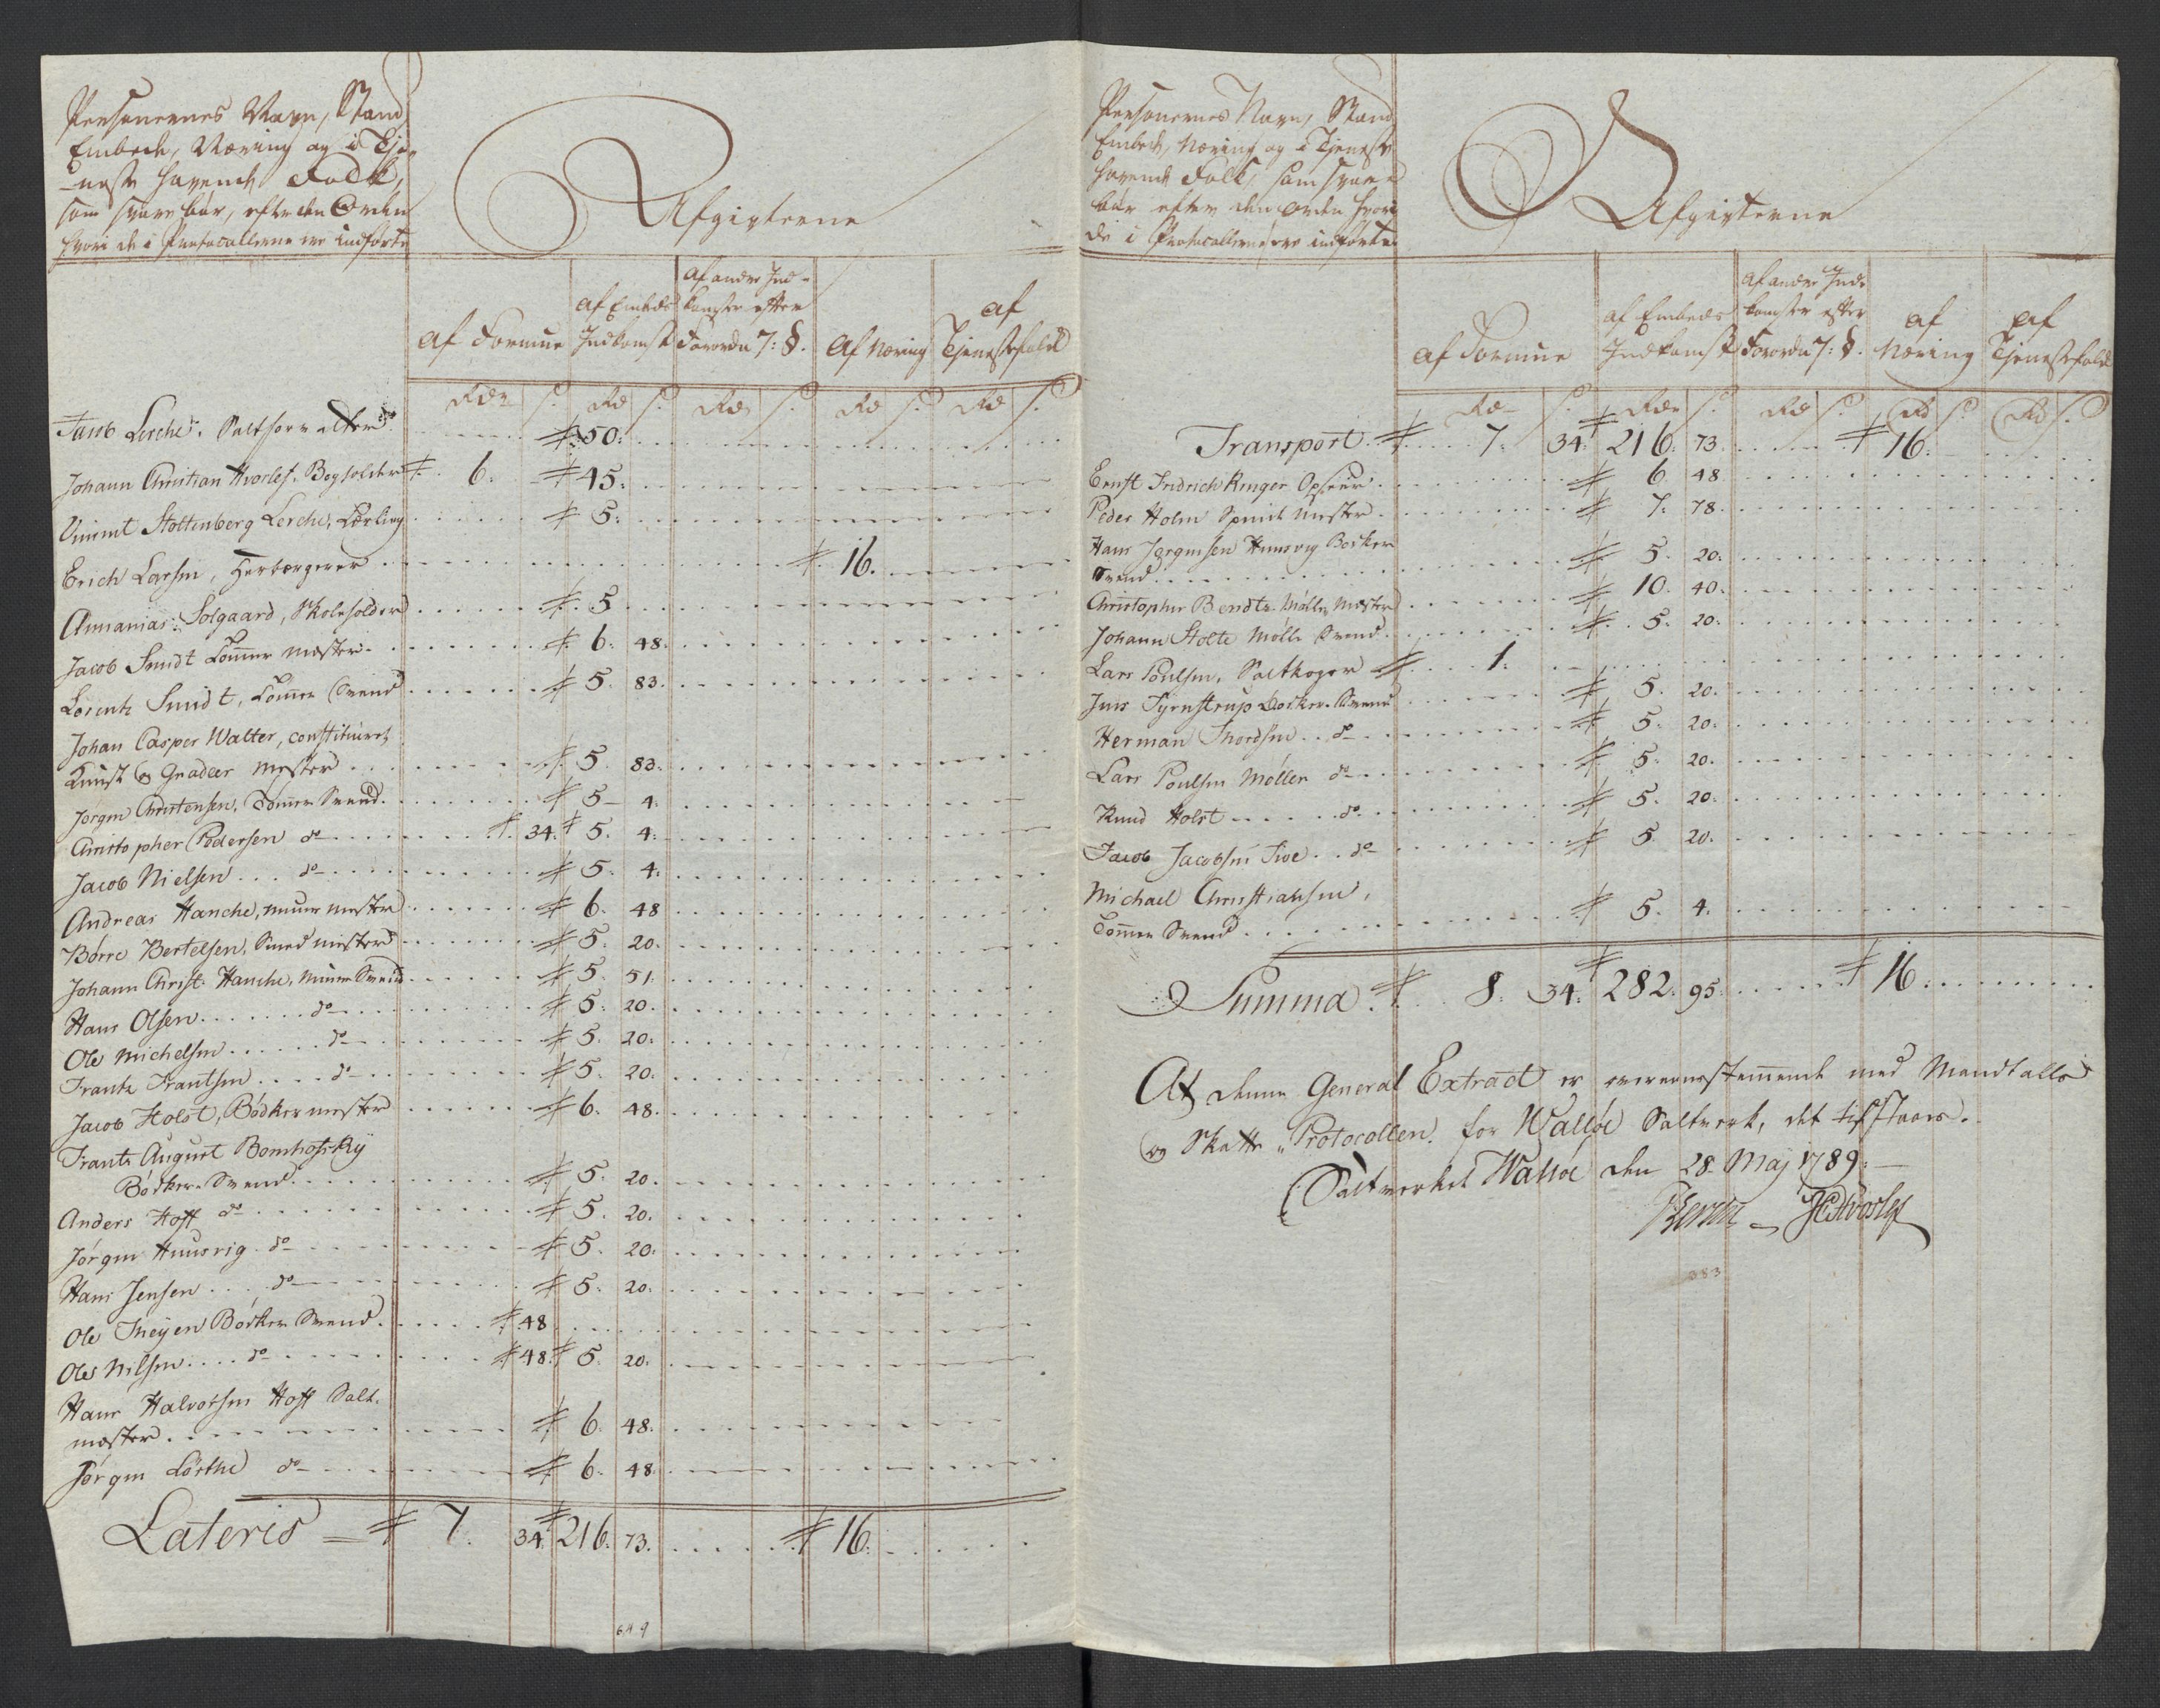 Personernes Navn, Stand
Embede, Næring og i Tje-
neste havende Folk,
som svare bør, efter den Orden
hvori de i Protocollerne ere indførte
Afgivterne
af Formue
af Embeds Indkomst
af andre Indkomster efter Forordn 7: §.
af Næring
af Tjenestefolk
Rdr s. Rd s. Rd s. Rd s. Rd s.
Jacob Lerche, Saltforvalter 50:
Johann Christian Hvorlef, Bogholder 6: 45:
Vincent Stoltenberg Lerche, Lærling 5:
Erich Larsen, Herbergerer 16.
Annanias Solgaard, Skoleholder 5
Jacob Smidt Tømmer Mester 6: 48.
Lorentz Smidt, Tømmer Svend 5. 83.
Johan Casper Walter, constitueret
Kunst og Gradeer Mester 5. 83.
Jørgen Christensen, Tømmer Svend. 5 4:
Christopher Pedersen do 34. 5. 4:
Jacob Nielsen do 5. 4:
Andreas Hanche, Muur Mester 6. 48
Børre Bertelsen, Smed Mester 5. 20.
Johann Christ. Hanche, Muur Svend 5. 51.
Hans Olsen do 5. 20.
Ole Michelsen do 5. 20.
Frantz Frantsen do 5. 20.
Jacob Holst, Bødker Mester 6. 48.
Frantz August Bomhofsky
Bødker Svend 5. 20.
Anders Hoff do 5. 20.
Jørgen Huusvig do 5. 20.
Hans Jensen do 5. 20.
Ole Theyen Bødker Svend 48
Ole Nilsen do 48. 5. 20.
Hans Halvorsen Hoff Salt-
mester 6. 48.
Jørgen Lørthe do 6. 48.
Lateris 7. 34. 216. 73. 16.
649
Personernes Navn, Stand
Embede, Næring og i Tjeneste
havende Folk, som svare
bør efter den Orden hvori
de i Protocollerne ere indførte
Afgivterne
af Formue
af Embeds Indkomst
af andre Indkomster efter Forordn 7: §.
af Næring
af Tjenestefolk
Rd s. Rdr s. Rd s. Rd s. Rd s.
Transport 7. 34. 216. 73. 16.
Ernst Fridrich Ringer Opseer 6. 48.
Peder Holm Smede Mester 7. 78.
Hans Jørgensen Huusvig Bødker
Svend 5. 20.
Christopher Bendtz Mølle Mester 10. 40.
Johann Stolte Mølle Svend. 5. 20.
Lars Poulsen, Saltkoger 1.
Jens Fyrnstrup Bødker Svend 5. 20.
Herman Thordsen do 5. 20.
Lars Poulsen Møller do 5. 20.
Knud Holst do 5. 20.
Jacob Jacobsen Tve do 5. 20.
Michael Christiansen,
Tømmer Svend 5. 4.
Summa 8. 34. 282. 95. 16.
At denne General Extract er overeensstemmende med Mandtalls
og Skatte Protocollen for Walløe Saltverk, det tilstaaes.
Saltverket Walløe den 28. Maj 1789.
Lerche JCHvorlef
383